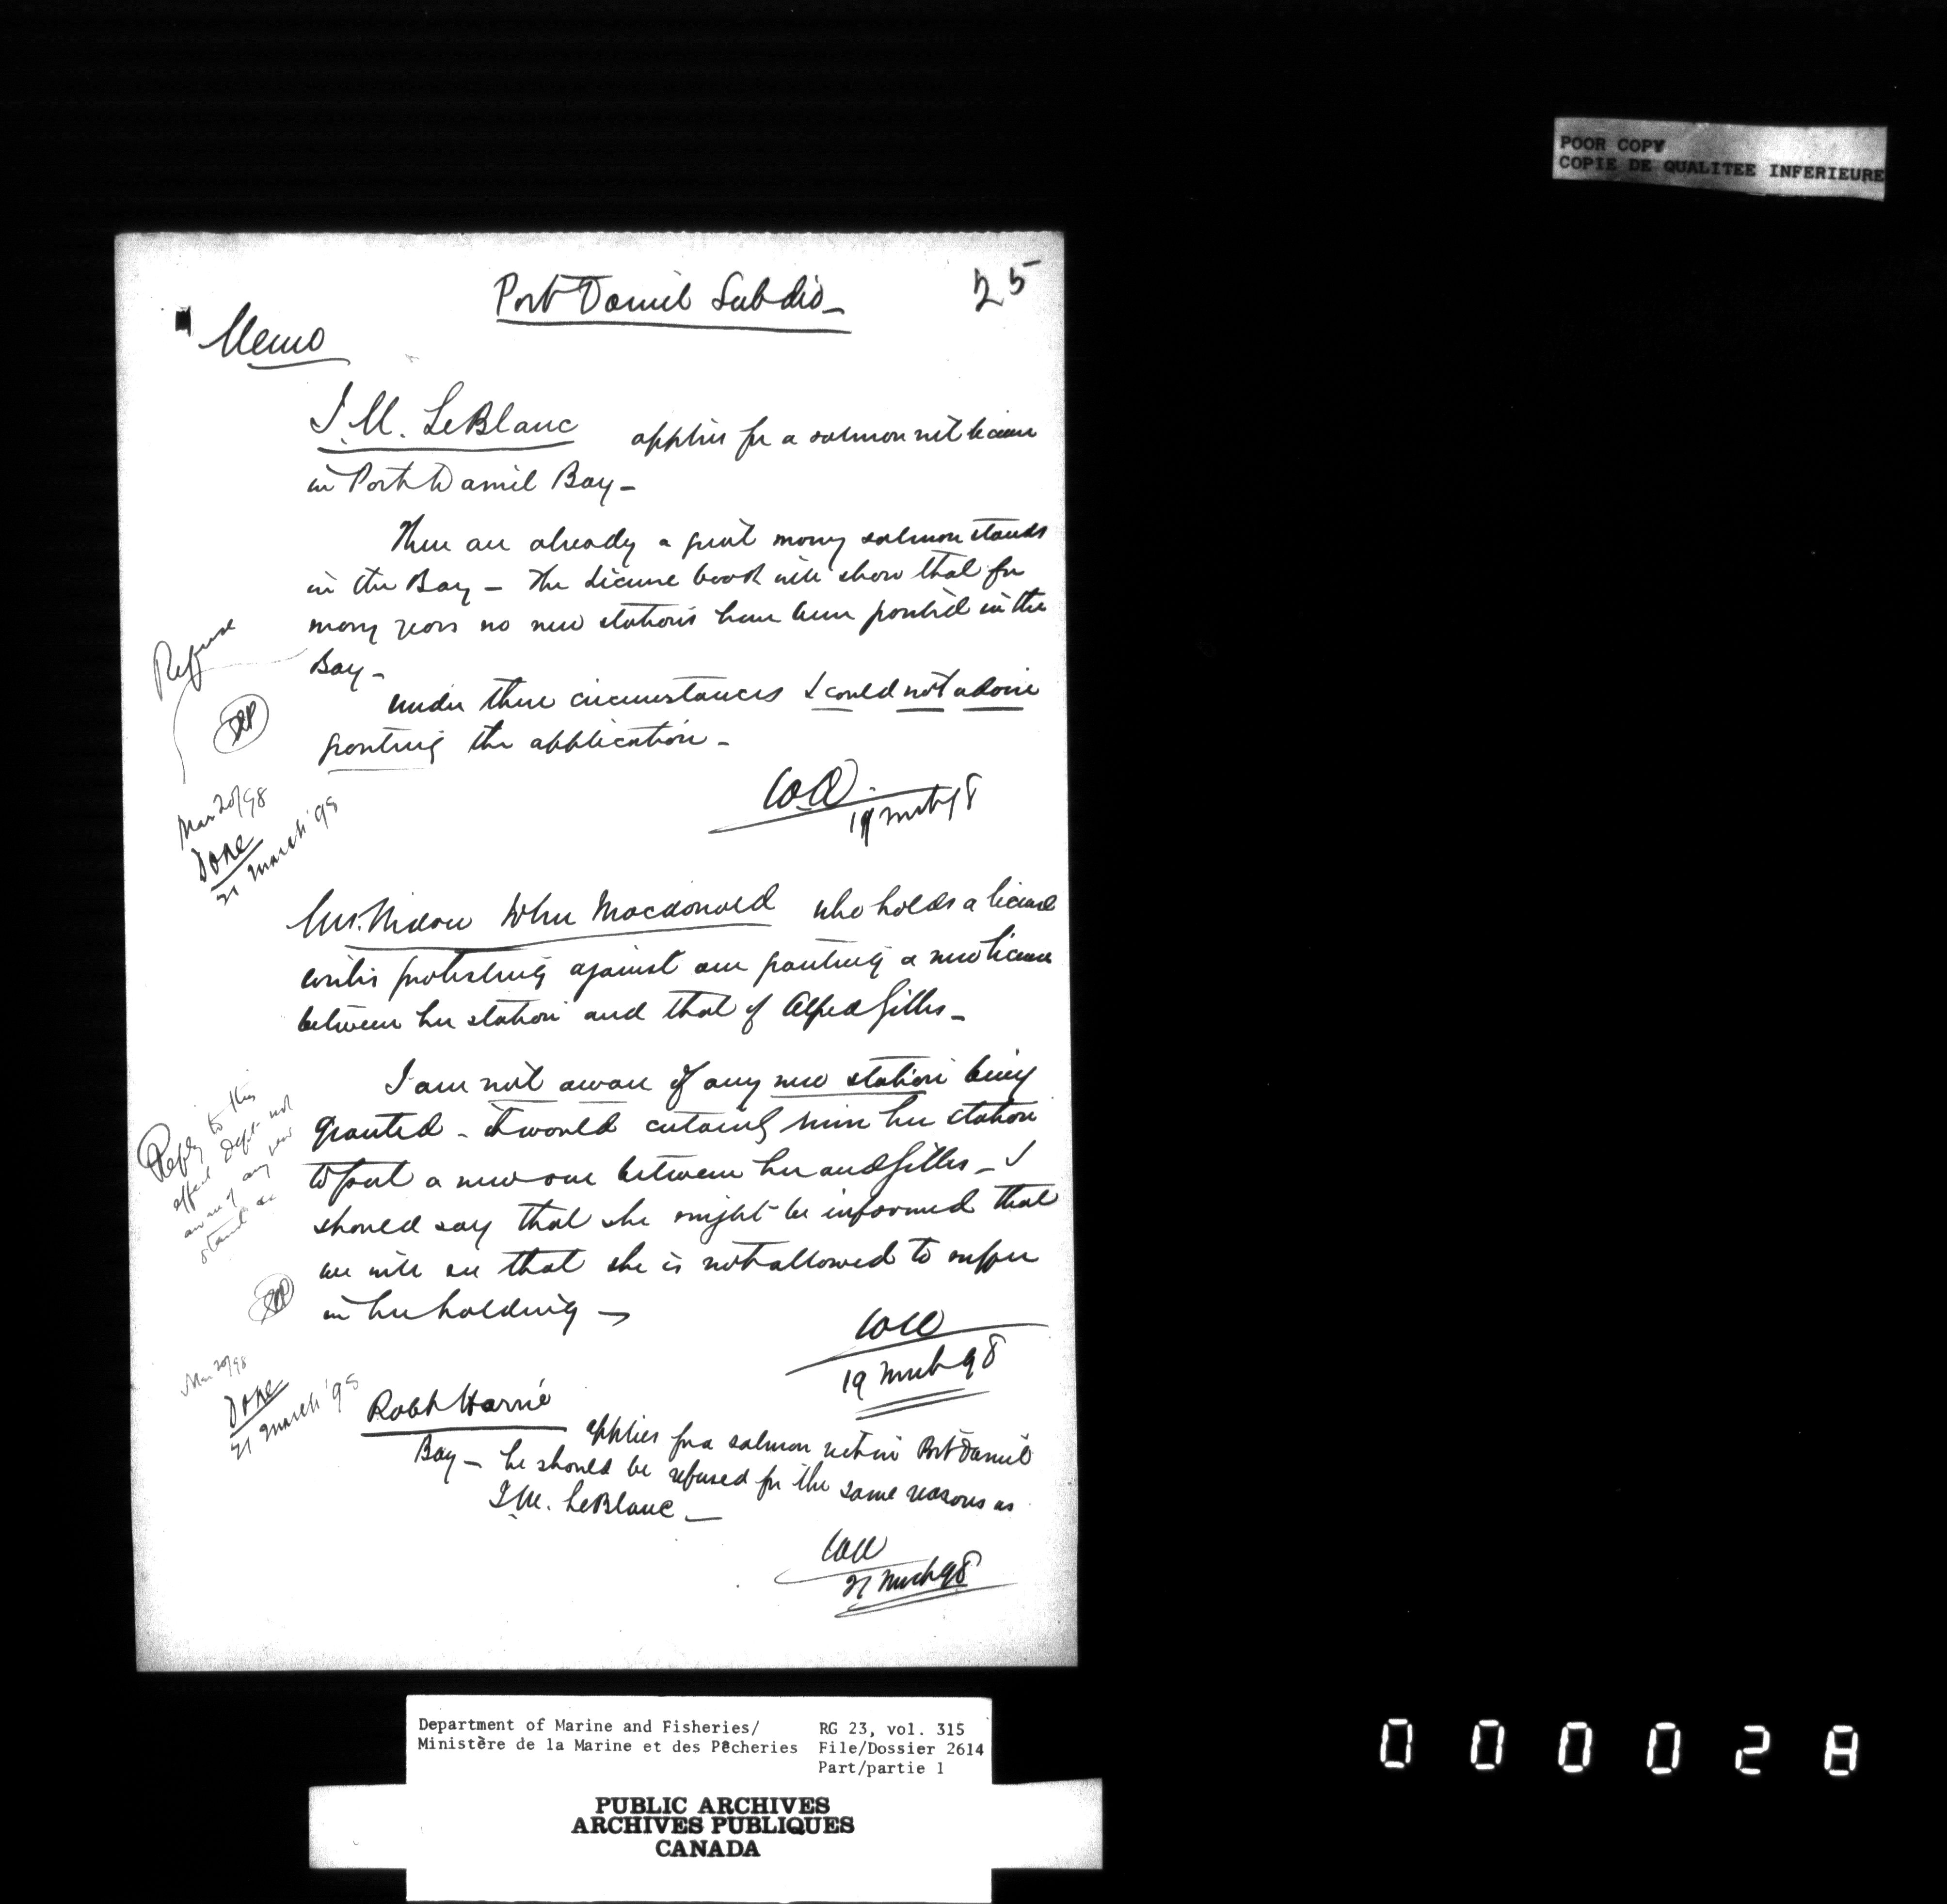 POOR COPY
COPIE DE QUALITEE INFERIEURE
25
Port Daniel Subdiv
Memo
J. M. LeBlanc applies for a salmon net license
in Port Daniel Bay –
There are already a great many salmon stands
in the Bay – The License book will show that for
many years no new stations have been granted in the
Bay –
under these circumstances I could not advise
granting the application –
19 March 98
Refuse
Mar 20/98
Done
21 March '98
Mrs. Widow John Macdonald who holds a license
writes protesting against our granting a new license
between her station and that of Alfred Gilles –
I am not aware of any new station being
granted – it would certainly ruin her station
to put a new one between her and Gilles – I
should say that she might be informed that
we will see that she is not allowed to suffer
in her holding –
19 March 98
Reply to this
effect Dept. not
aware of any new
stand &c
Mar 20/98
Done
21 March '98
Robt Harrie
applies for a salmon net in Port Daniel
Bay – he should be refused for the same reasons as
J. M. LeBlanc –
21 March 98
Department of Marine and Fisheries/
Ministère de la Marine et des Pêcheries
RG 23, vol. 315
File/Dossier 2614
Part/partie 1
PUBLIC ARCHIVES
ARCHIVES PUBLIQUES
CANADA
000028